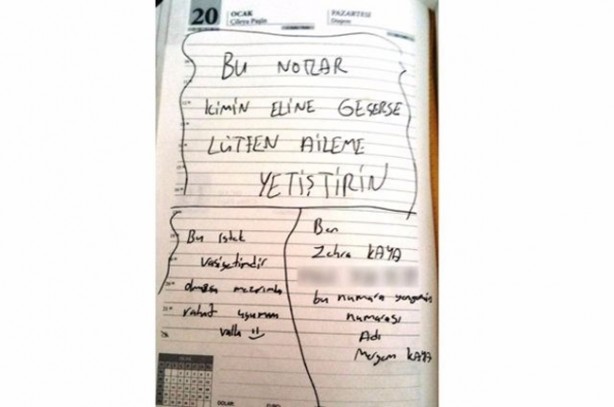 20
OCAK
PAZARTESİ
BU NOTLAR
KİMİN ELİNE GEÇERSE
LÜTFEN AİLEME
YETİŞTİRİN
Bu istek
vasiyetimdir
olmazsa mezarımda
rahat uyumam
valla
Ben
Zehra KAYA
bu numara yengemin
numarası
Adı
Meryem KAYA